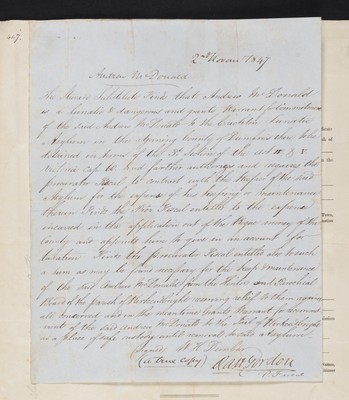 447.
2nd Novem 1847
Andrew McDonald
The Sheriff Substitute Finds that Andrew McDonald
is a lunatic & dangerous and grants Warrant for transmission
of the said Andrew McDonald to the Crichton Lunatic
Asylum in the adjoining County of Dumfries there to be
detained in terms of the 3d Section of the act 4 & 5
Vict. cap 60 And further authorizes and requires the
procurator fiscal to contract with the Keeper of the said
Asylum for the expense of his keeping or maintenance
therein Finds the Pror Fiscal entitled to the expense
incurred in the application out of the Rogue money of the
County and appoints him to give in an account for
taxation Finds the procurator Fiscal entitled also to such
a sum as may be found necessary for the keep & maintenance
of the said Andrew McDonald from the Heritors and Parochial
Board of the parish of Kirkcudbright reserving relief to them against
all concerned and in the meantime grants Warrant for commit
ment of the said Andrew McDonald to the Jail of Kirkcudbright
as a place of safe custody until removed to said Asylum
(signed) W. H.
(a true copy)
Gordon
P. Fiscal